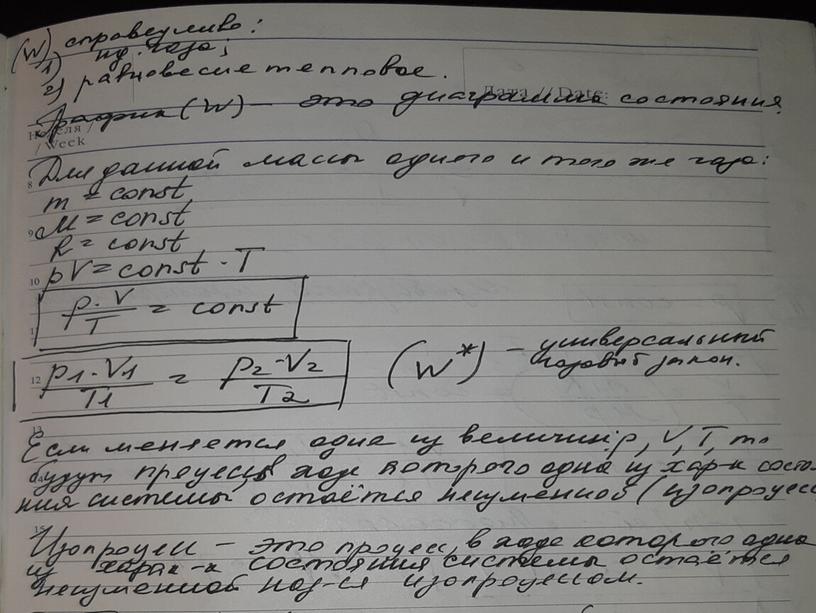 (W) справедливо:
1) ид. газа;
2) равновесие тепловое.
Дата / Date:
График (W) – это диаграмма состояния.
Неделя /
/ Week
8 Для данной массы одного и того же газа:
m = const
9 M = const
R = const
10 pV = const · T
p · V / T = const
12 p1 · V1 / T1 = p2 · V2 / T2 (W*) – универсальный
газовый закон.
13
Если меняется одна из величин: p, V, T, то
будут процессы ходе которого одна из хар-к состо-
ния системы остаётся неизменной (изопроцесс
15
Изопроцесс – это процесс, в ходе которого одна
из харак-к состояния системы остаётся
неизменной наз-ся изопроцессом.